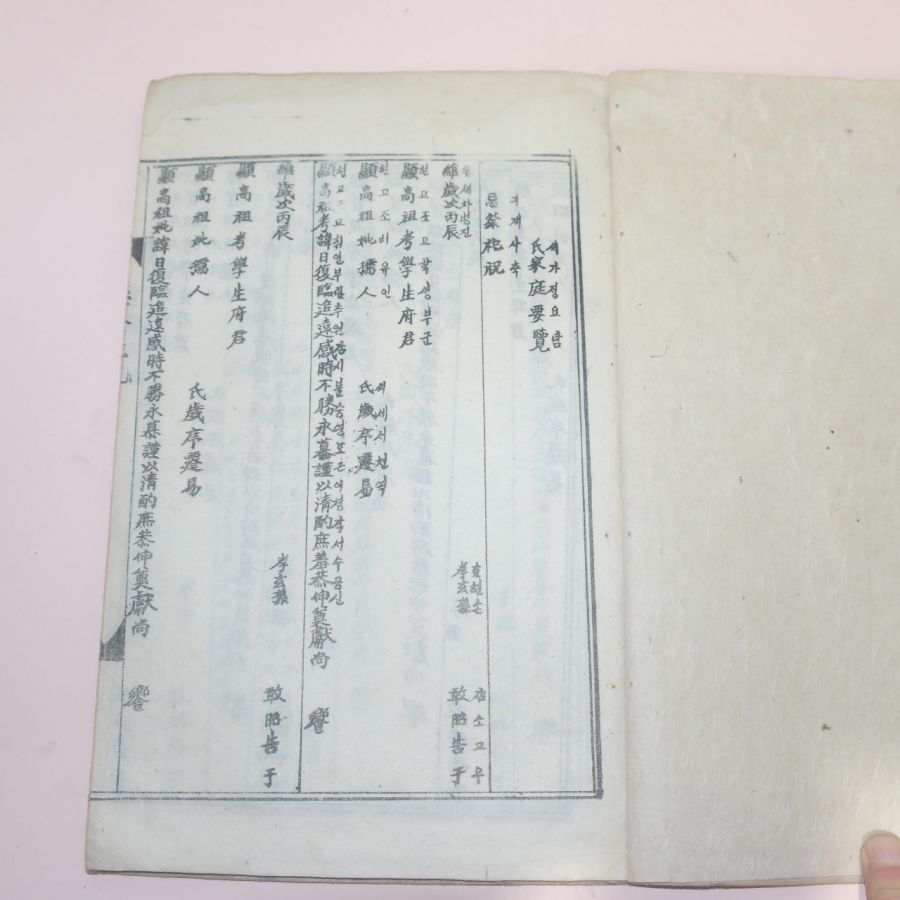 씨가정요람
氏家庭要覽
긔제사축
忌祭祀祝
유세차병진
維歲次丙辰
효현손
孝玄孫
감소고우
敢昭告于
현고조고학생부군
顯高祖考學生府君
현고조비유인
顯高祖妣孺人
씨세서천역
氏歲序遷易
顯高祖考諱日復臨追遠感時不勝永慕謹以清酌庶羞恭伸奠獻尙
饗
維歲次丙辰
孝玄孫
敢昭告于
顯高祖考學生府君
顯高祖妣孺人
氏歲序遷易
顯高祖妣諱日復臨追遠感時不勝永慕謹以清酌庶恭伸奠獻尙
饗